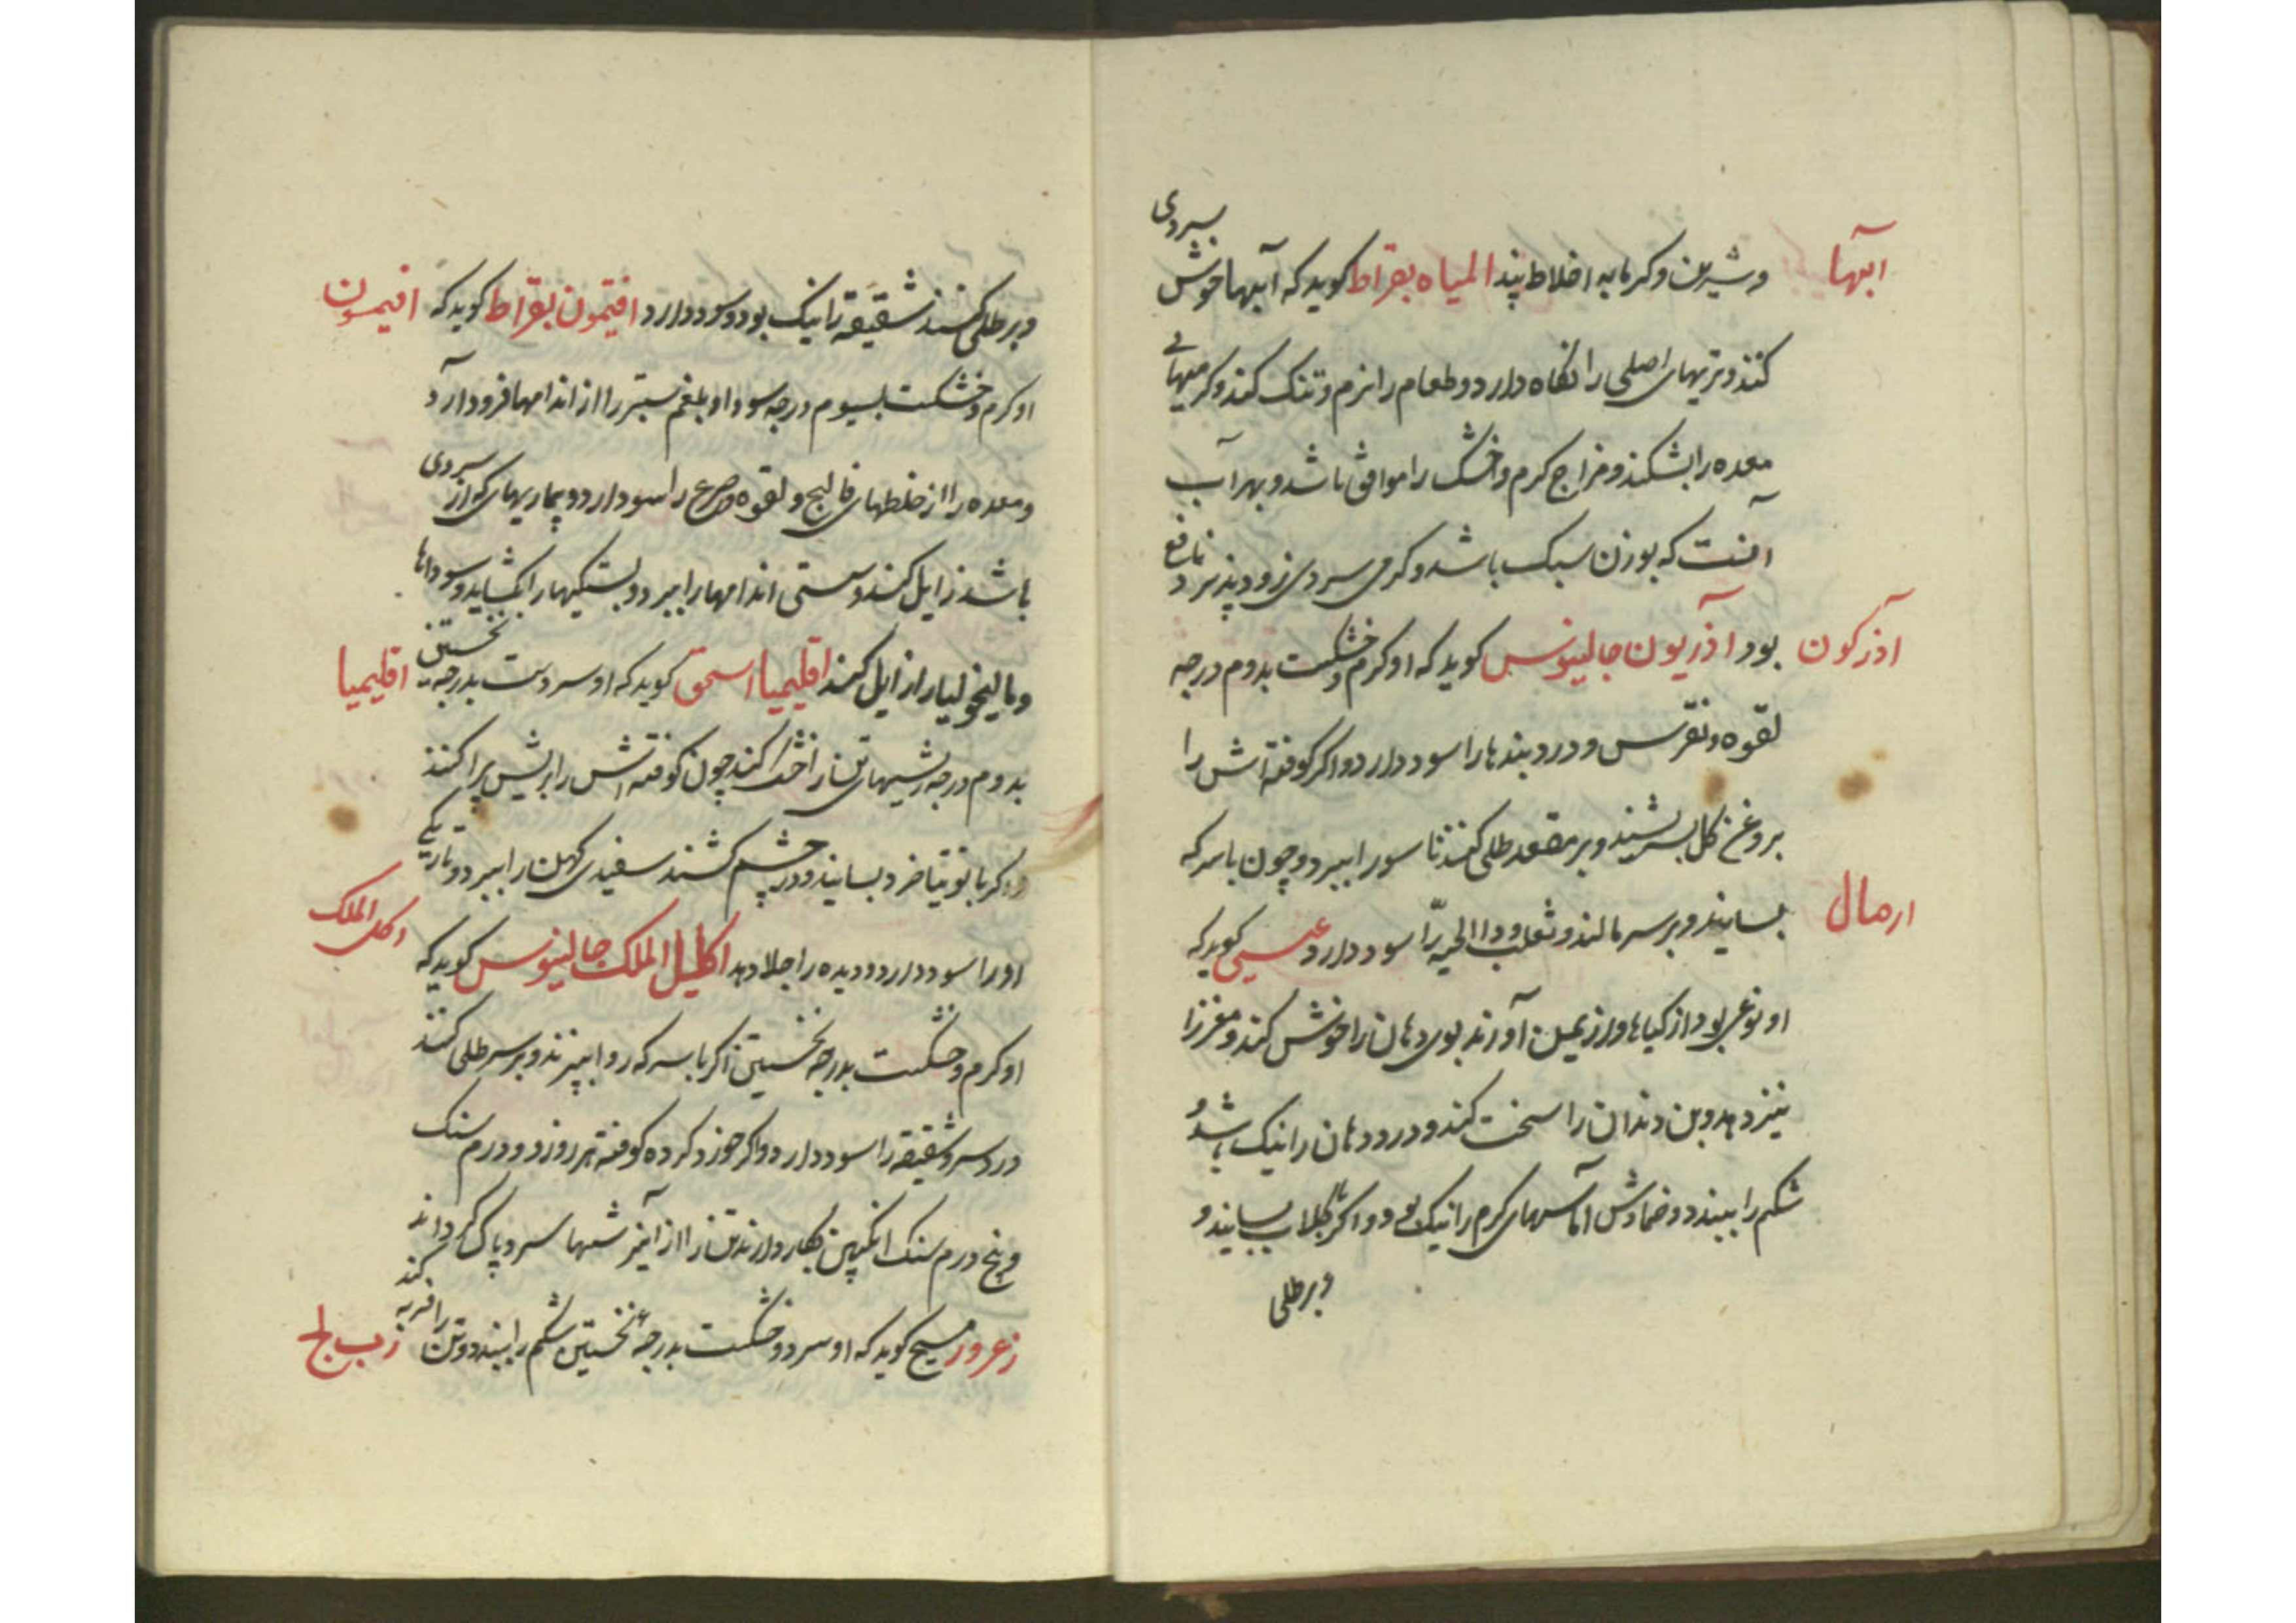 ابها
وشیرین وکرمابه اخلاط پند المیاه بقراط کوید که آبها خوش سردی
کنند وتریهای اصلی را نکاه دارد وطعام را نرم وتنک کند وکرمیهای
معده را بشکند ومزاج کرم وخشک را موافق باشد وبهر آب
آنست که بوزن سبک باشد وکرمی سردی زود پذیرد نافع
اذرکون
بود اذریون جالینوس کوید که او کرم وخشکست بدوم درجه
لقوه ونقرس ودرد بندها را سود دارد واکر کوفته اش را
بروغن کل بسرشند وبر مقعد طلی کنند ناسور را ببرد وچون با سرکه
ارمال
بسایند وبر سر مالند وثعلب وداالحیه را سود دارد عیسی کوید که
او نوعی بود از کیاها واز یمن آورند بوی دهان را خوش کند ومغز را
نیز دهد وبن دندان را سخت کند ودرد دهان را نیک باشد و
شکم را ببندد وضمادش آماسهای کرم را نیک بود واکر بکلاب بسایند و
وبر طلی
وبر طلی کنند شقیقه را نیک بود وسود دارد افتیمون بقراط کوید که
افیمون
او کرم وخشکست بسیوم درجه سودا وبلغم ستبر را از اندامها فرود آرد
ومعده را از خلطهای فالج ولقوه وصرع را سود دارد وبیماریهای که از سردی
باشد زایل کند وسستی اندامها را ببرد وبستکیها را بکشاید وسوداها
ومالیخولیا را زایل کند اقلیمیا اسحق کوید که او سردست بدرجه نخستین
اقلیمیا
بدوم درجه ریشهای تن را خشک کند چون کوفته اش را بر ریش پراکنند
واکر با توتیا خرد بسایند ودر چشم کشند سفیدی کهن را ببرد وتاریکی
او را سود دارد ودیده را جلا دهد اکلیل الملک جالینوس کوید که
اکلیل الملک
او کرم وخشکست بدرجه نخستین اکر با سرکه بپزند وبر سر طلی کنند
درد سر وشقیقه را سود دارد واکر خورد کرده کوفته هر روز دو درم سنک
وپنج درم سنک انکبین بکار دارند تن را از آمیزشهای سرد پاک کرداند
زعرور مسیح کوید که او سرد وخشکست بدرجه نخستین شکم را ببندد وتن را فربه کند